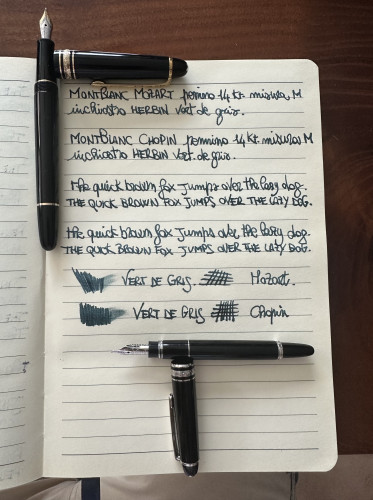 MONTBLANC MOZART pennino 14 Kt misura M
inchiostro HERBIN Vert de gris.
MONTBLANC CHOPIN pennino 14 Kt misura M
inchiostro HERBIN Vert de gris.
the quick brown fox jumps over the lazy dog.
THE QUICK BROWN FOX JUMPS OVER THE LAZY DOG.
the quick brown fox jumps over the lazy dog.
THE QUICK BROWN FOX JUMPS OVER THE LAZY DOG.
VERT DE GRIS. Mozart.
VERT DE GRIS Chopin